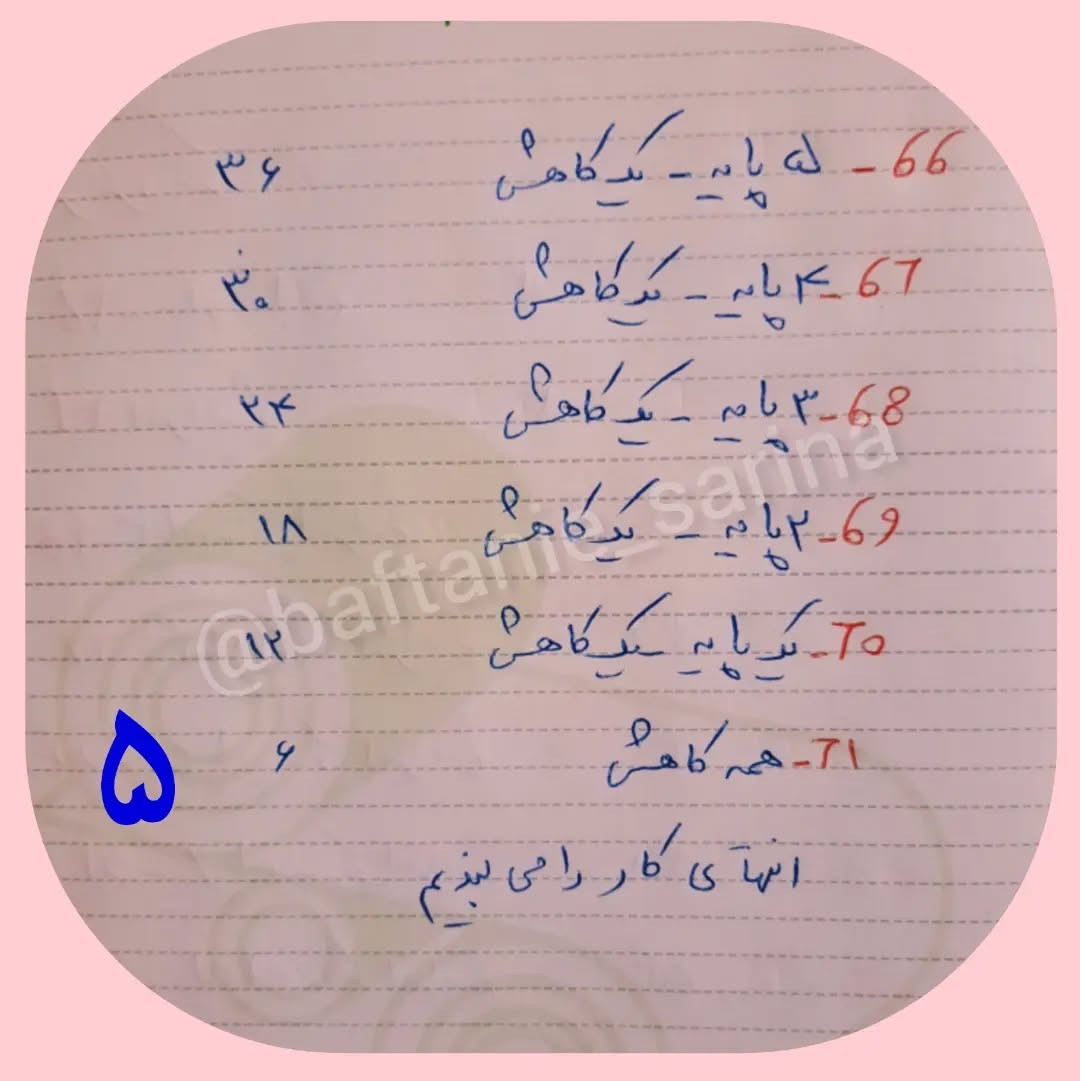 66- ۵ پایه - یک کاهش ۳۶
67- ۴ پایه - یک کاهش ۳۰
68- ۳ پایه - یک کاهش ۲۴
69- ۲ پایه - یک کاهش ۱۸
70- یک پایه - یک کاهش ۱۲
71- همه کاهش ۶
انتهای کار را می بندیم
۵
@baftanie_sarina